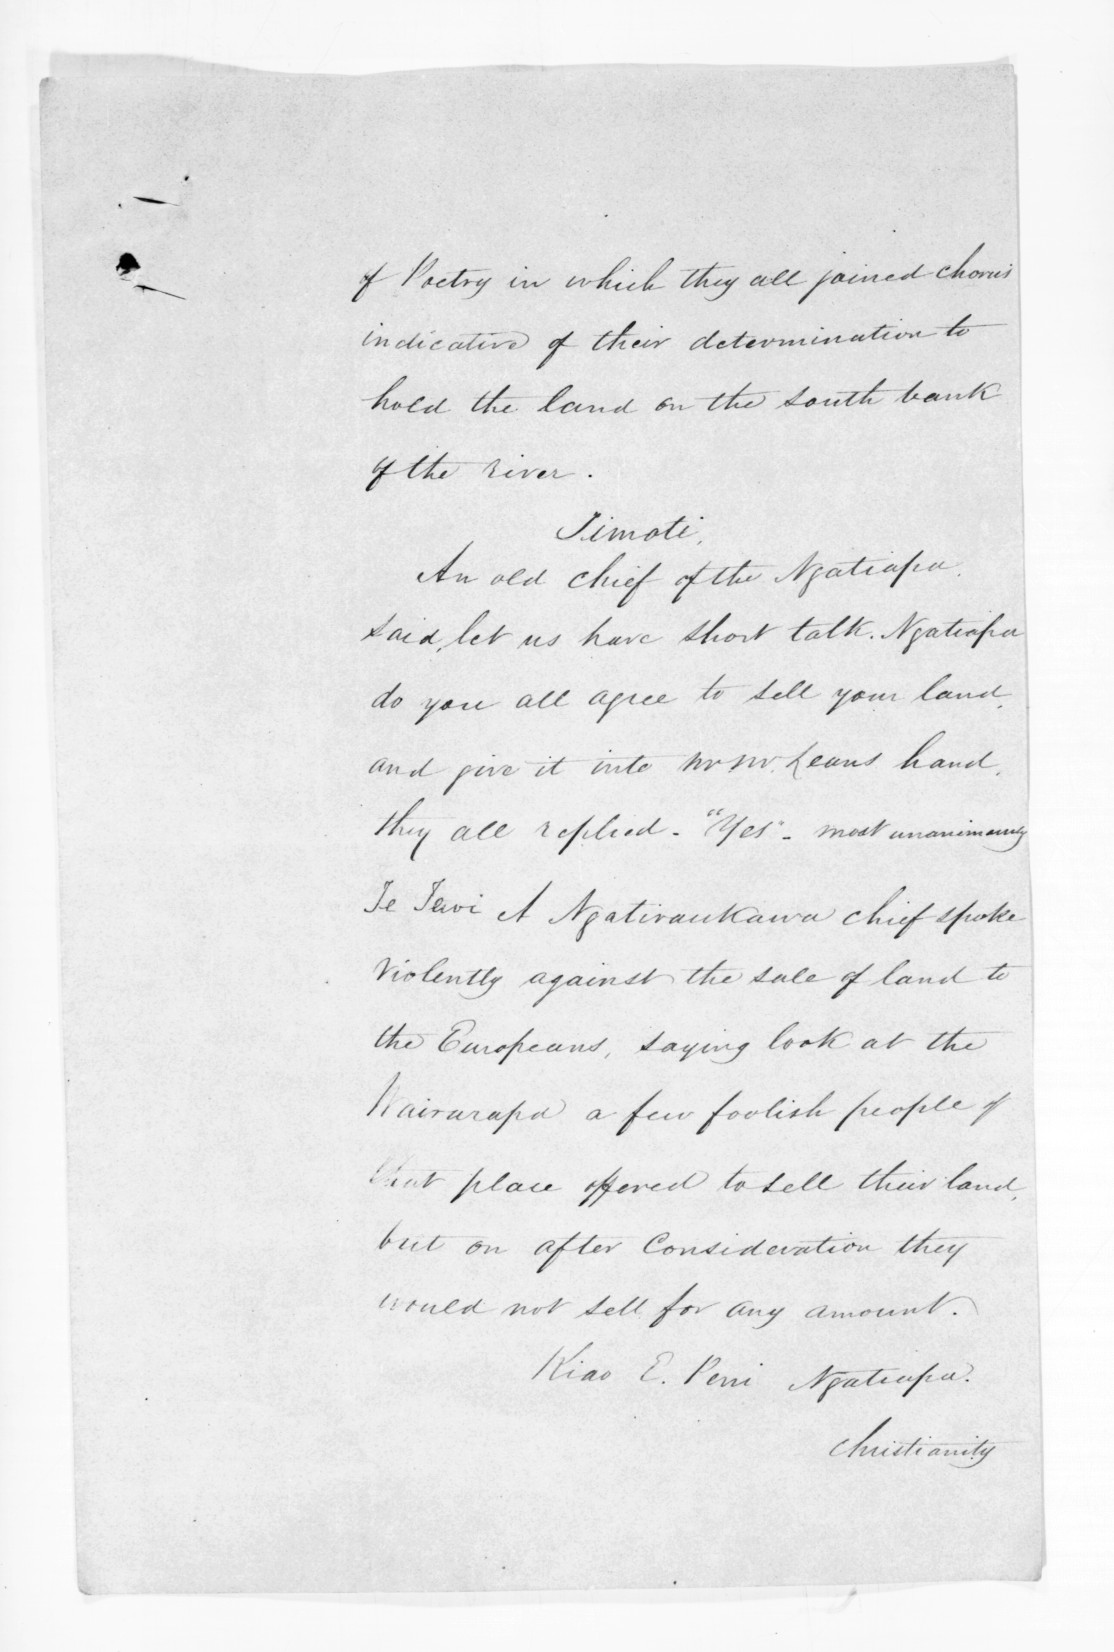 of Poetry in which they all joined chorus
indicative of their determination to
hold the land on the south bank
of the river.
Timoti.
An old chief of the Ngatiapa.
said, let us have short talk. Ngatiapa
do you all agree to sell your land,
and give it into Mr McLeans hand,
they all replied - "Yes" - most unanimously
Te Tawi A Ngatiraukawa chief spoke
violently against the sale of land to
the Europeans, saying look at the
Wairarapa a few foolish people of
that place offered to sell their land,
but on after Consideration they
would not sell for any amount.
Kiao E. Peni Ngatiapa.
Christianity